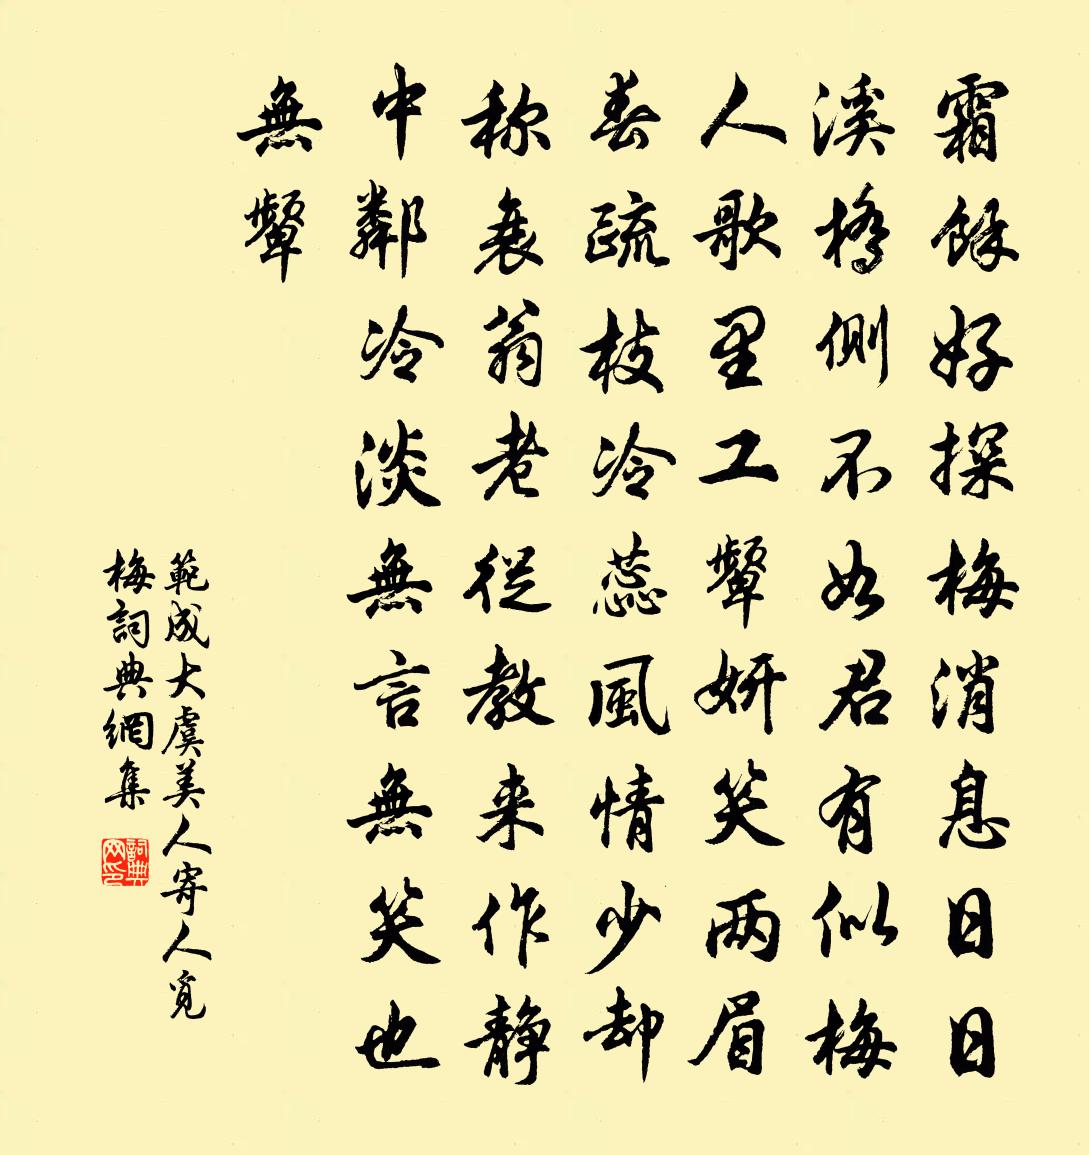 霜餘好探梅消息日日
溪橋側不如君有似梅
人歌里工顰妍笑两眉
春疏枝冷蕊風情少却
称衰翁老從教来作靜
中鄰冷淡無言無笑也
無顰
範成大虞美人寄人覓
梅詞典網集
詞典
网印